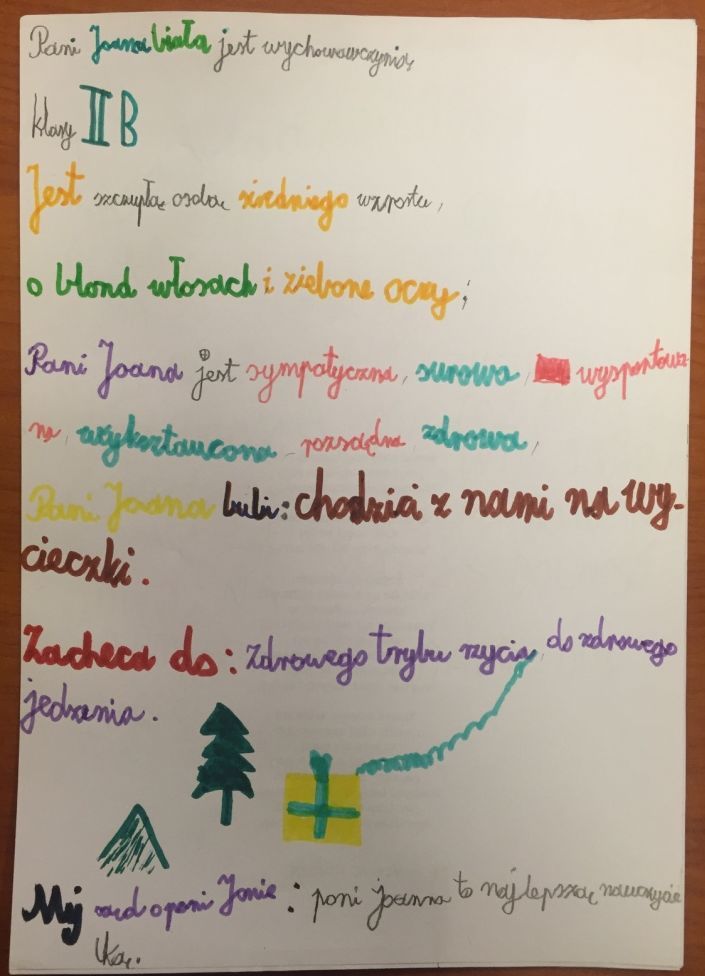 Pani Joana biała jest wychowawczynią
klasy II B
Jest szczupłą osobą siedniego wzrostu,
o blond włosach i zielone oczy;
Pani Joana jest sympatyczna, surowa, wysportowa-
na, wykształucona, rozsądna zdrowa,
Pani Joana lubi: chodzić z nami na wy-
cieczki.
Zacheca do: Zdrowego trybu rzycia, do zdrowego
jedzenia.
Mej o pani Jonie: pani joanna to najlepszą nauczycie
lką.